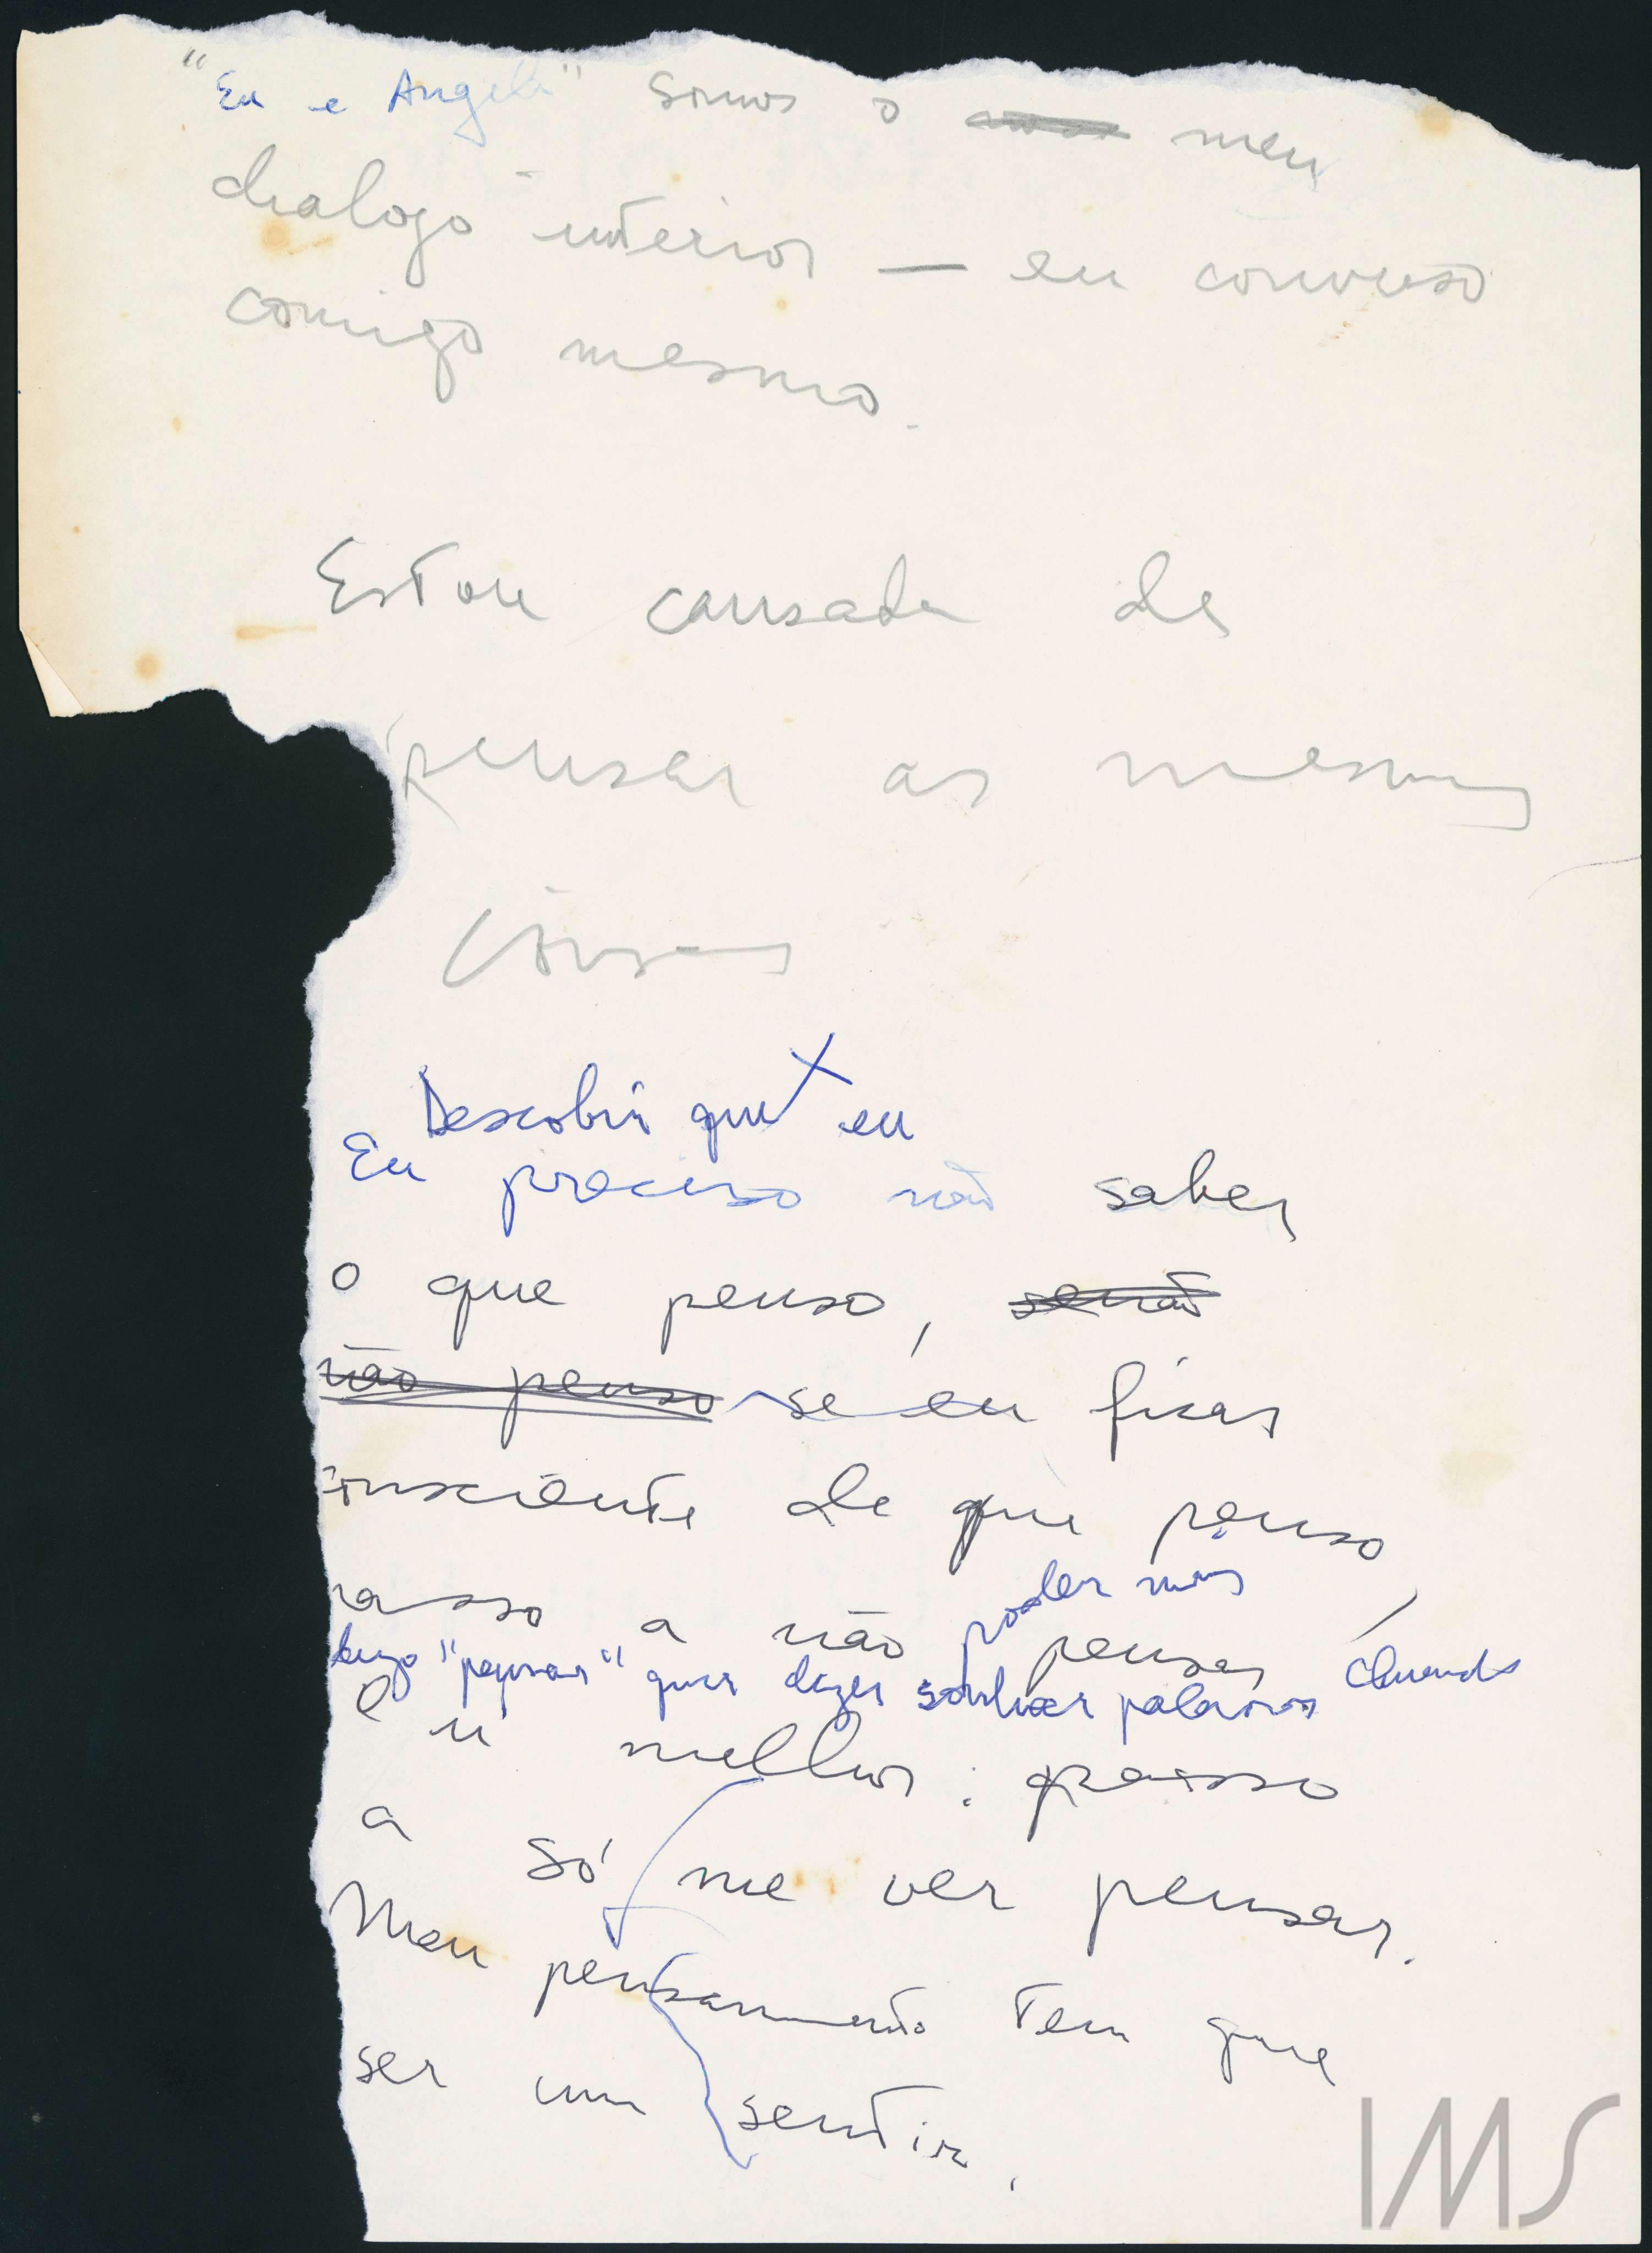 "Eu e Angela" somos o meu
dialogo interior — eu converso
comigo mesmo.
Estou cansada de
pensar as mesmas
coisas
Descobri que eu
Eu preciso não saber
o que penso, senão
não penso se eu ficar
onsciente de que penso,
asso a não poder mais pensar
digo "pensar" quer dizer sonhar palavras Quando
e u melhor: passo
a só me ver pensar.
Meu pensamento tem que
ser um sentir.
IMS